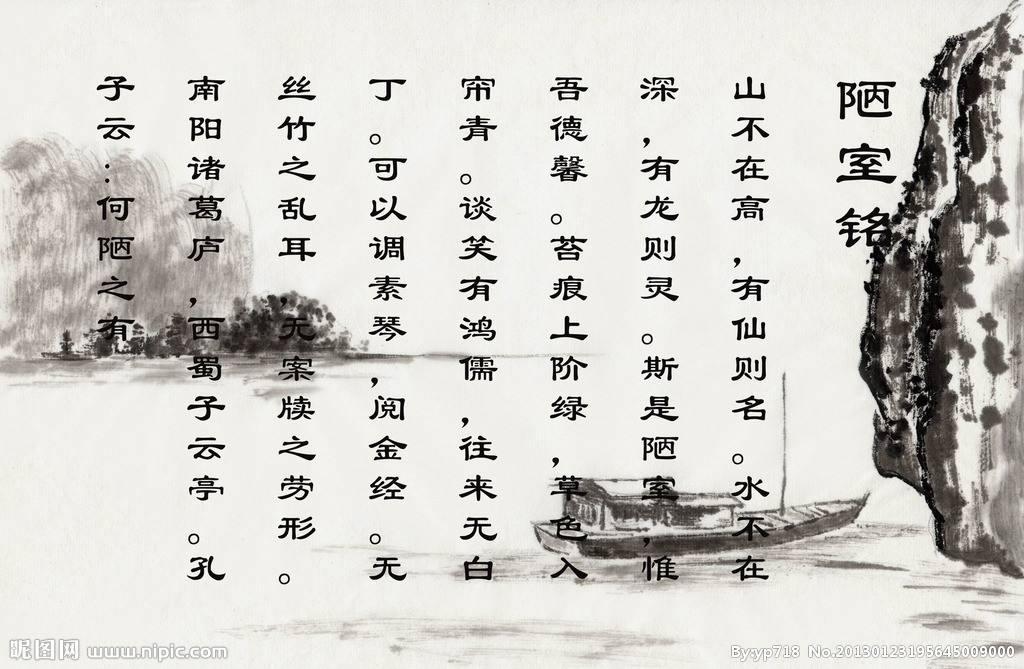 陋室铭
山不在高，有仙则名。水不在
深，有龙则灵。斯是陋室，惟
吾德馨。苔痕上阶绿，草色入
帘青。谈笑有鸿儒，往来无白
丁。可以调素琴，阅金经。无
丝竹之乱耳，无案牍之劳形。
南阳诸葛庐，西蜀子云亭。孔
子云：何陋之有
昵图网 www.nipic.com
By:yp718 No.20130123195645009000